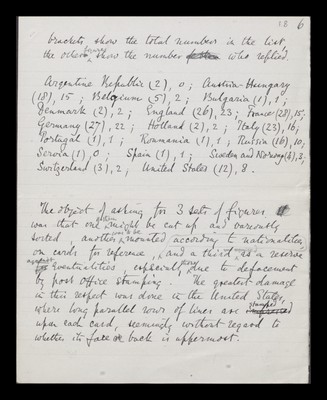 18 6
brackets show the total number in the list,
the other figures show the number who replied.
Argentine Republic (2), 0; Austria-Hungary
(18), 15; Belgium (5), 2; Bulgaria (1), 1;
Denmark (2), 2; England (26), 23; France (28), 15;
Germany (27), 22; Holland (2), 2; Italy (23), 16;
Portugal (1), 1; Roumania (1), 1; Russia (16), 10;
Servia (1) 0; Spain (1), 1; Sweden and Norway (3), 3;
Switzerland (3), 2; United States (12), 8.
The object of asking for 3 sets of figures
was that one might be cut up and variously
sorted, another was to be mounted according to nationalities,
on cards for reference, and a third as a reserve
against Eventualities, especially due to defacement
by post office stamping. The greatest damage
in this respect was done in the United States,
where long parallel rows of lines are stamped
upon each card, seemingly without regard to
whether its face or back is uppermost.